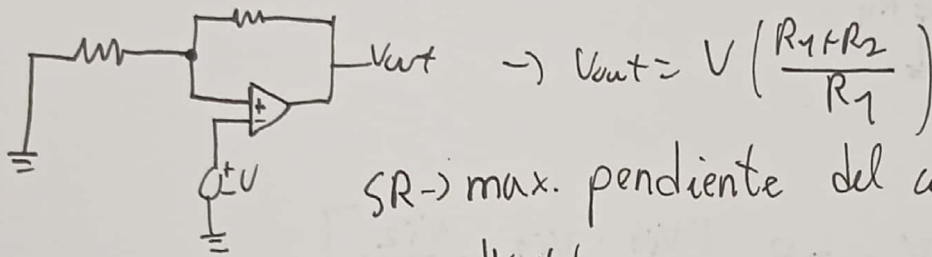 Vout → Vout = V (R1+R2 / R1)
+
-
± V
SR → max. pendiente del